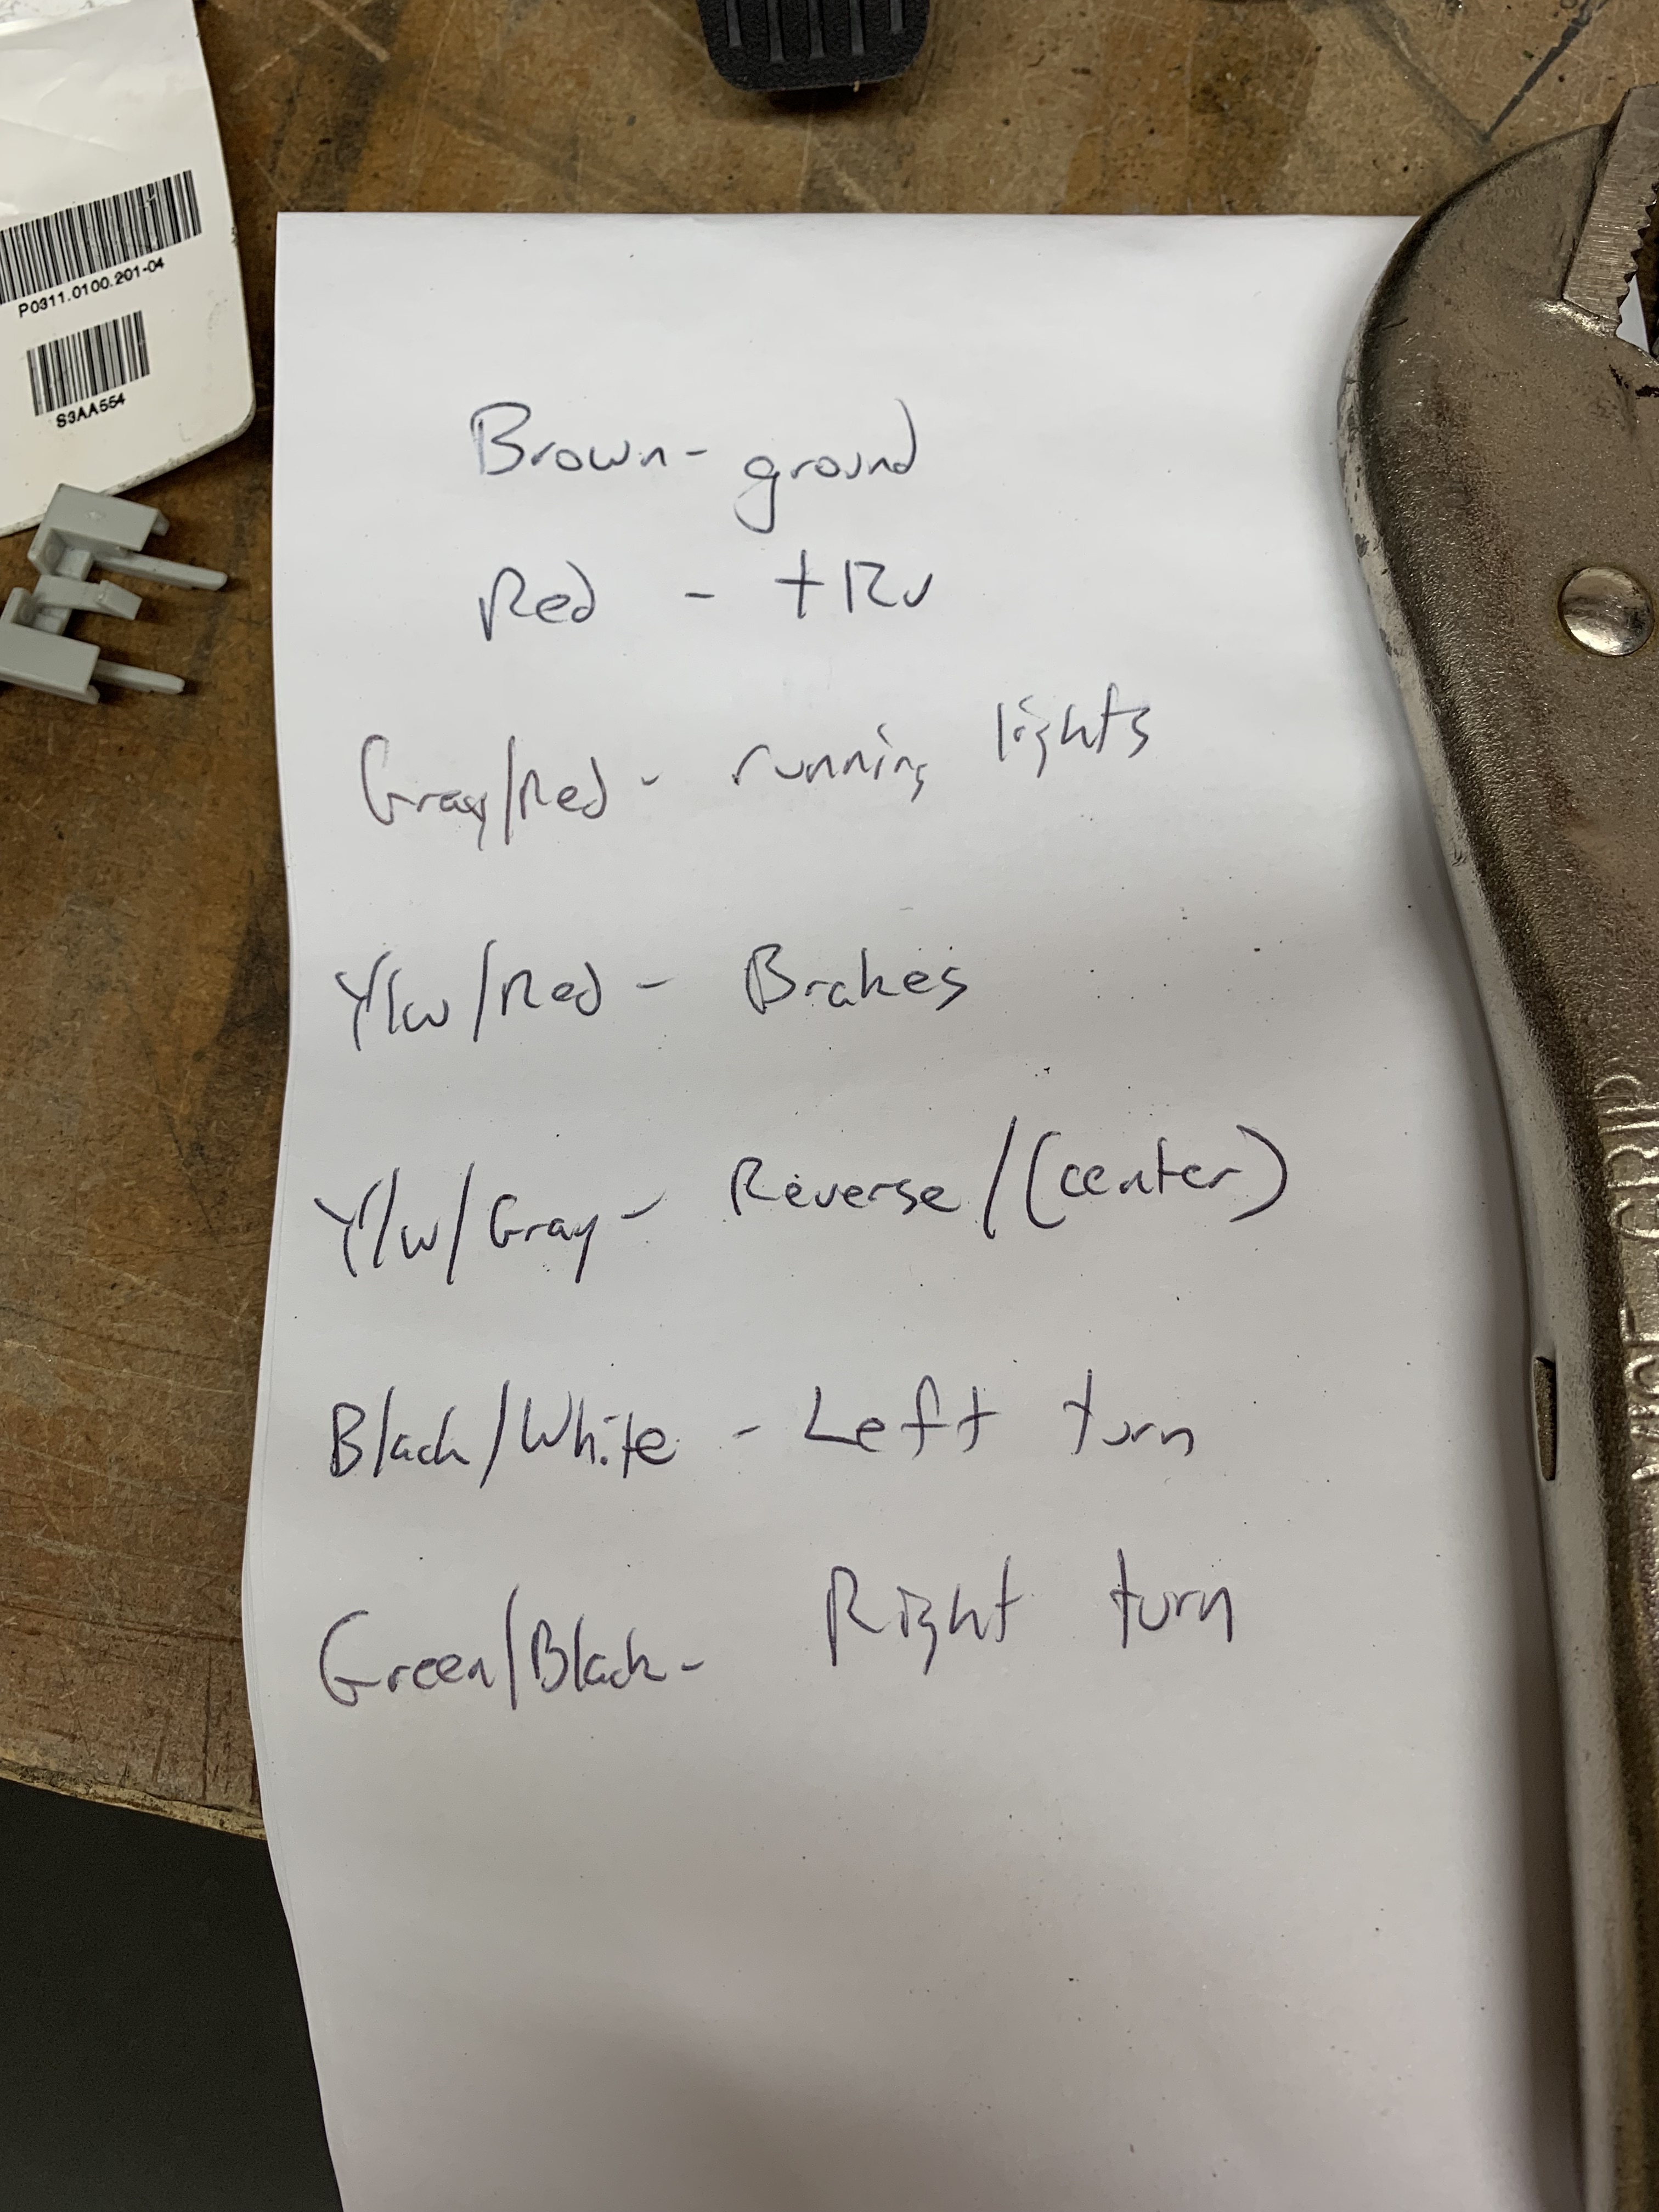 P0311.0100.201-04
S3AA554
Brown - ground
Red - +12v
Gray/Red - running lights
Ylw/Red - Brakes
Ylw/Gray - Reverse/(center)
Black/White - Left turn
Green/Black - Right turn
VISE-GRIP